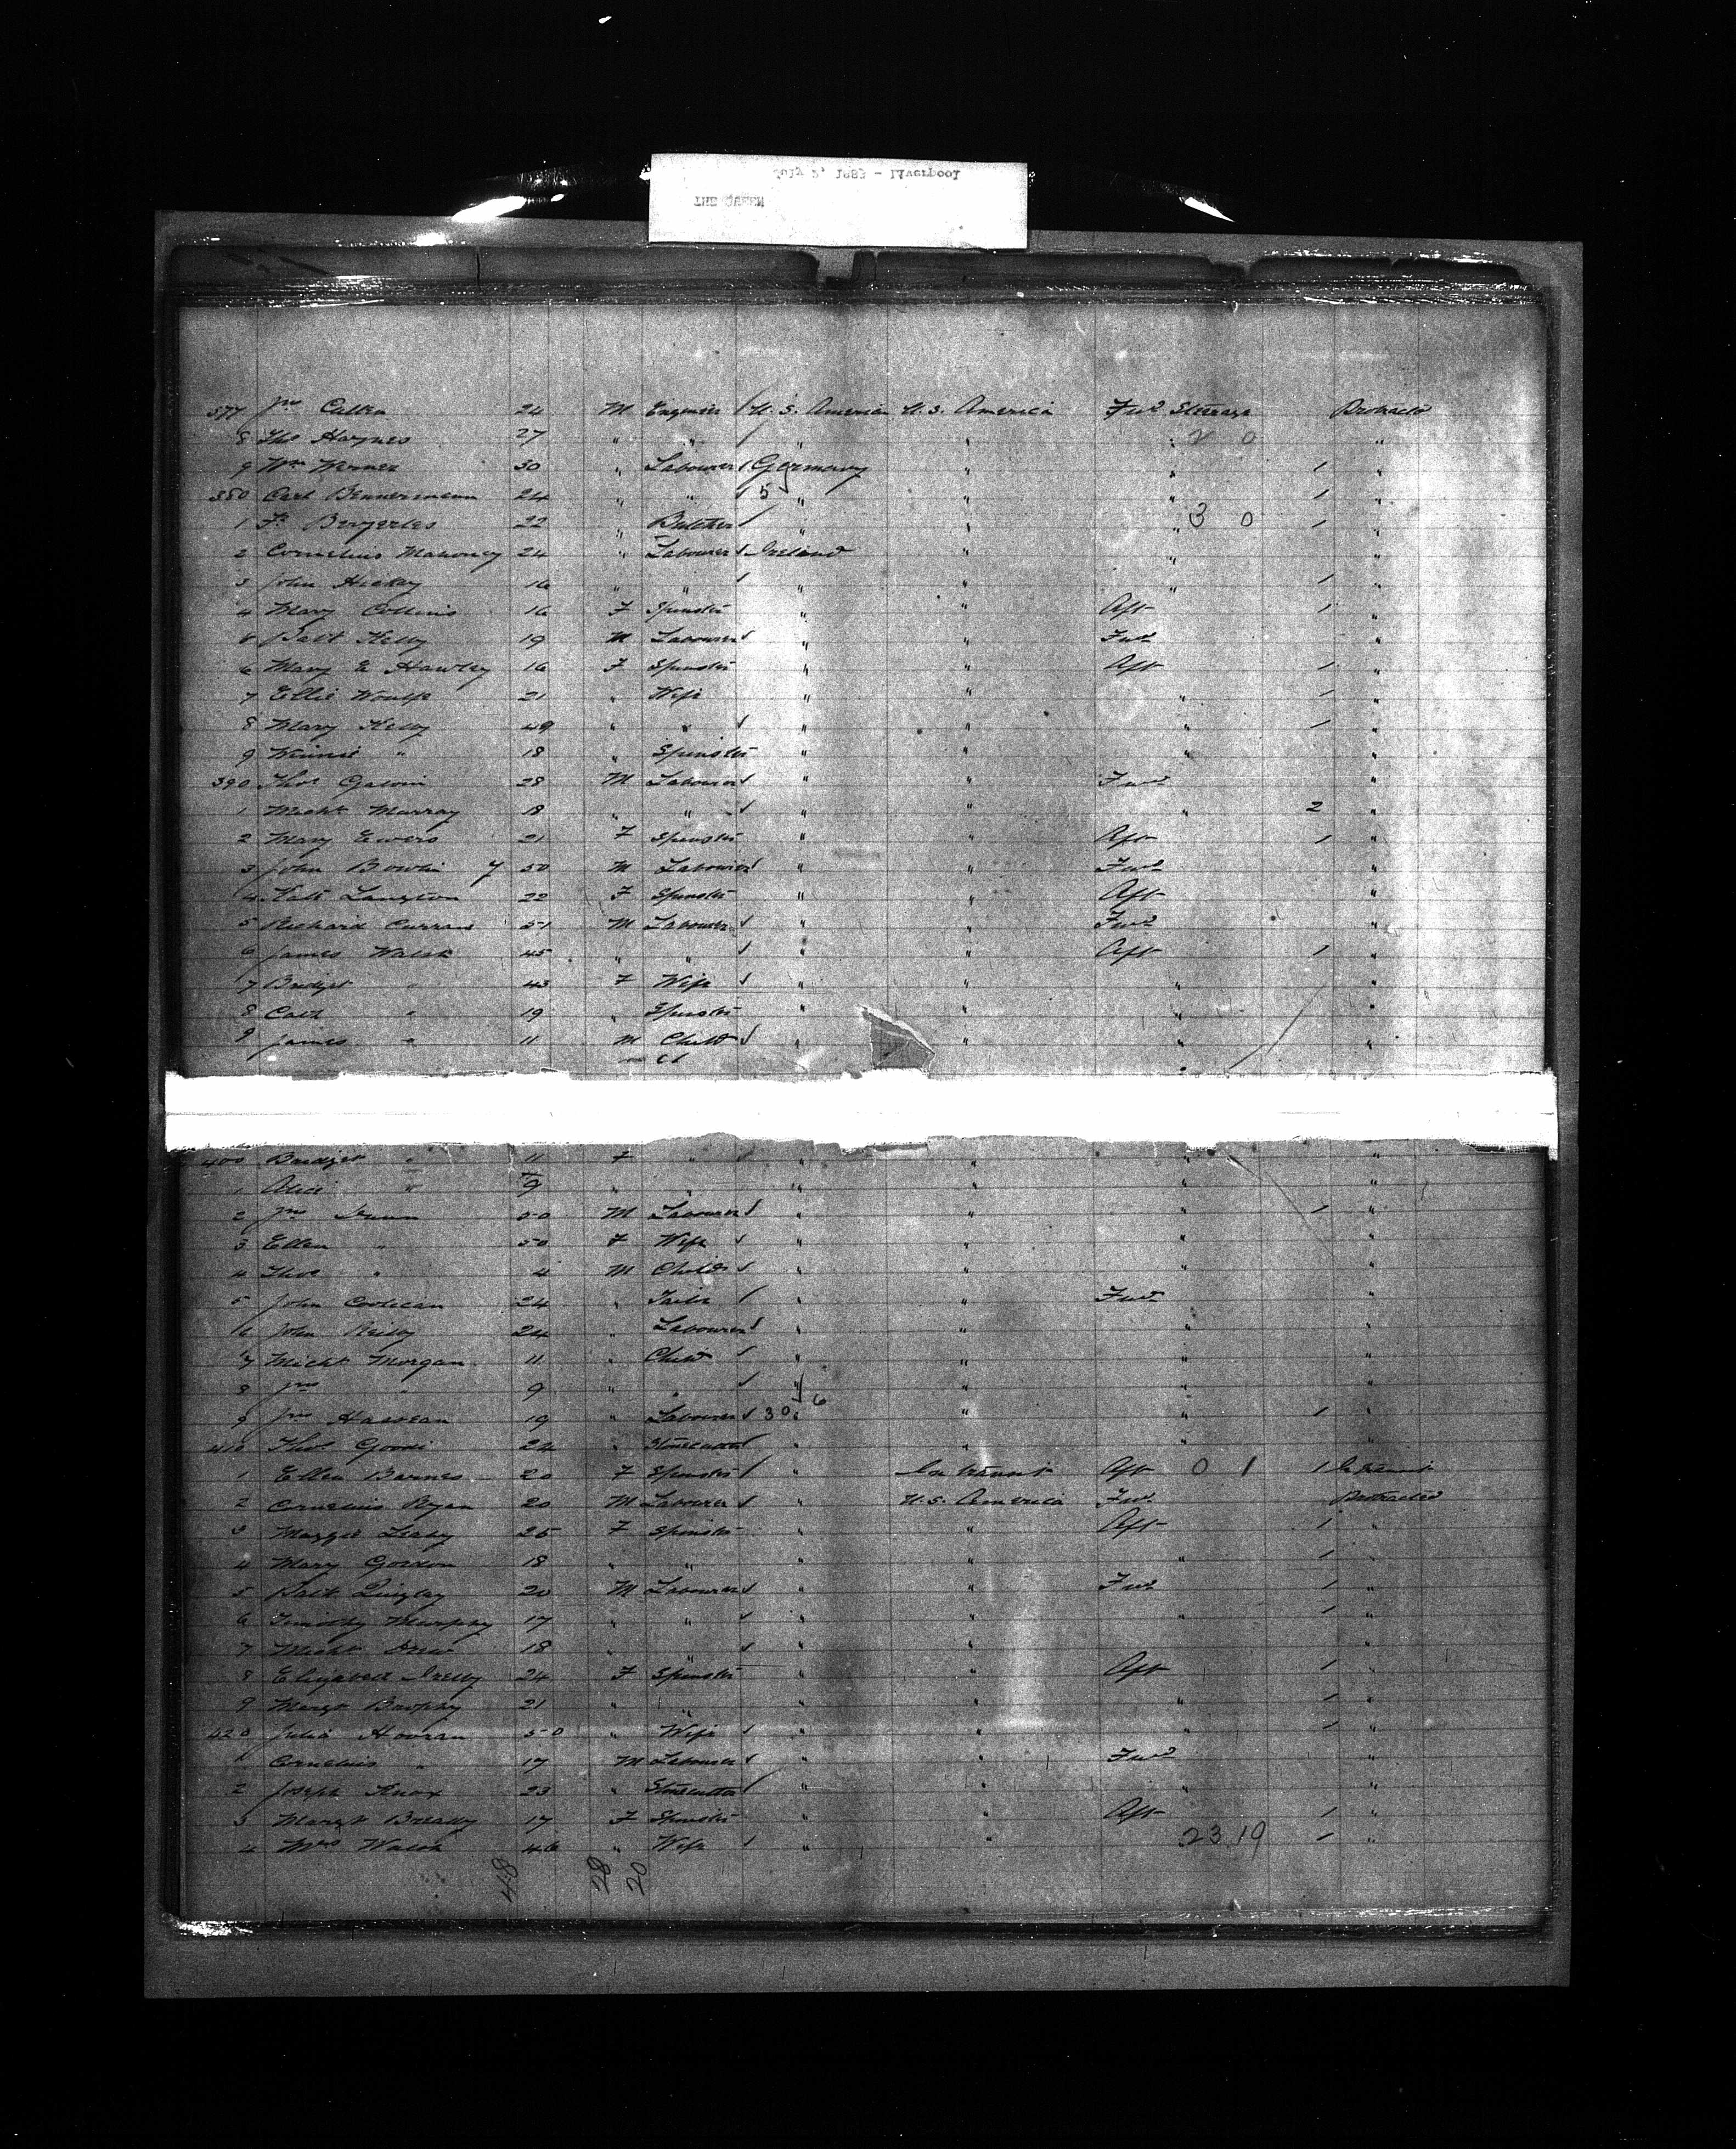 July 2, 1883 - Liverpool
THE QUEEN
377 Jno 24 M Engineer U. S. America U. S. America Fwd Steerage Protracted
8 Thos Haynes 27 " " " " " 2 0 "
9 Wm Werner 30 " Labourer Germany " 1 "
380 Carl Bennermann 24 " " 5 " " " 1 "
1 22 " Butcher " " " 3 0 1 "
2 Cornelius Mahoney 24 " Labourer Ireland " " "
3 John Hickey 16 " " " " " 1 "
4 Mary Collins 16 F Spinster " " Aft 1 "
5 Patk Kelly 19 M Labourer " " Fwd "
6 Mary E Hawley 16 F Spinster " " Aft 1 "
7 Ellie Woulfe 21 " Wife " " " 1 "
8 Mary Kelly 49 " " " " 1 "
9 Winnie " 18 " Spinster " " " "
390 Thos Galvin 28 M Labourer " " Fwd "
1 Michl Murray 18 " " " " " 2 "
2 Mary Ewers 21 F Spinster " " Aft 1 "
3 John Bowlin 50 M Labourer " " Fwd "
4 Kate Langton 22 F Spinster " " Aft "
5 Richard Curran 51 M Labourer " " Fwd "
6 James Walsh 45 " " " " Aft 1 "
7 Bridget " 43 F Wife " " " "
8 Cath " 19 " Spinster " " " "
9 James " 11 M Child " " " "
400 Bridget " 11 F " " " " "
1 Alice " 9 " " " " " "
2 Jno 50 M Labourer " " " 1 "
3 Ellen " 50 F Wife " " " "
4 Thos " 4 M Child " " " "
5 John 24 " Tailor " " Fwd
6 John Reilly 24 " Labourer " " " "
7 Michl Morgan 11 " Child " " " "
8 Jno " 9 " " " " " "
9 Jno 19 " Labourer 30 " 6 " " 1 "
410 Thos 24 " Stonecutter " " " "
1 Ellen Barnes 20 F Spinster " In transit Aft 0 1 1 In transit
2 Cornelius Ryan 20 M Labourer " U.S. America Fwd Protracted
3 Maggie Leahy 25 F Spinster " " Aft 1 "
4 Mary Gordon 18 " " " " " 1 "
5 Patk Quigley 20 M Labourer " " Fwd 1 "
6 Timothy Murphy 17 " " " " " 1 "
7 Michl Drew 18 " " " " "
8 Elizabeth 24 F Spinster " " Aft 1 "
9 Margt Brophy 21 " " " " " 1 "
420 Julia 50 " Wife " " " 1 "
1 Cornelius " 17 M Labourer " " Fwd "
2 Joseph Knox 23 " Stonecutter " " " "
3 Margt 17 F Spinster " " Aft 1 "
4 Mrs Walsh 46 " Wife " " 23 19 1 "
48 28 20